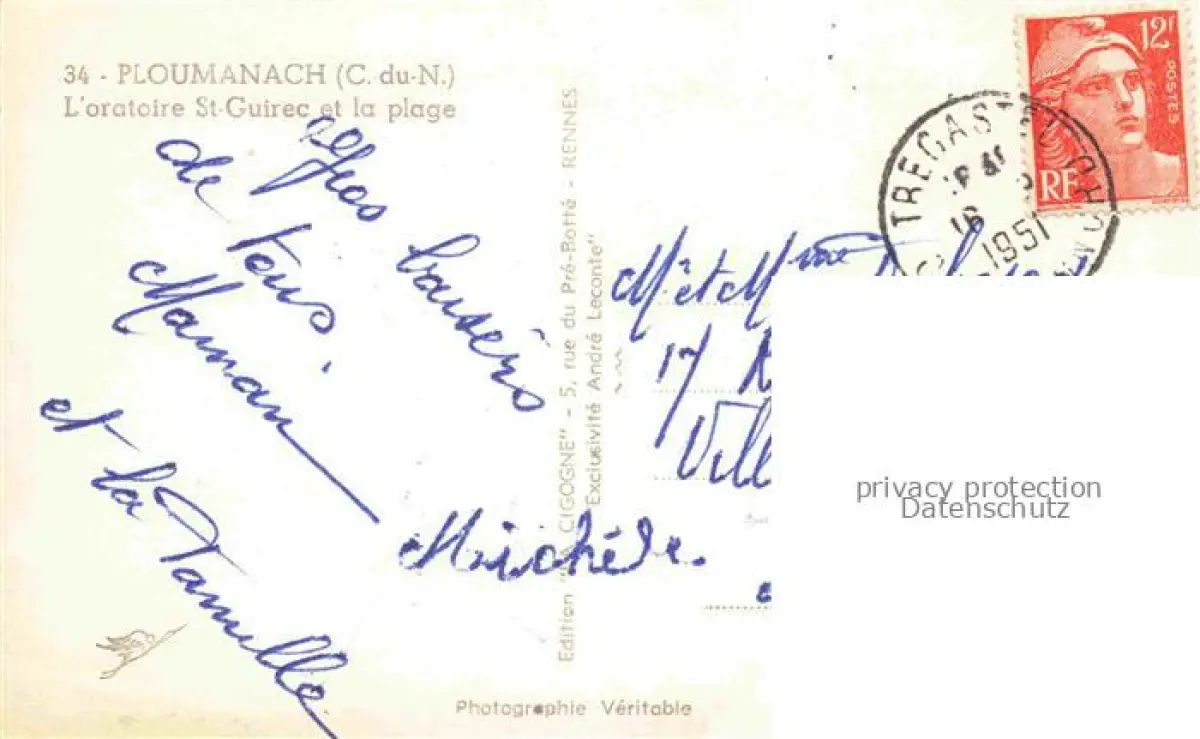 34 - PLOUMANACH (C. du-N.)
L'oratoire St-Guirec et la plage
Gros baisers
de tous.
Maman
et la famille
Michèle.
Edition "LA CIGOGNE" - 5, rue du Pré-Botté - RENNES
Exclusivité André Leconte"
Photographie Véritable
12F
POSTES
RF
TREGASTEL
16
1951
Mr et Mme
17
Vill
privacy protection
Datenschutz